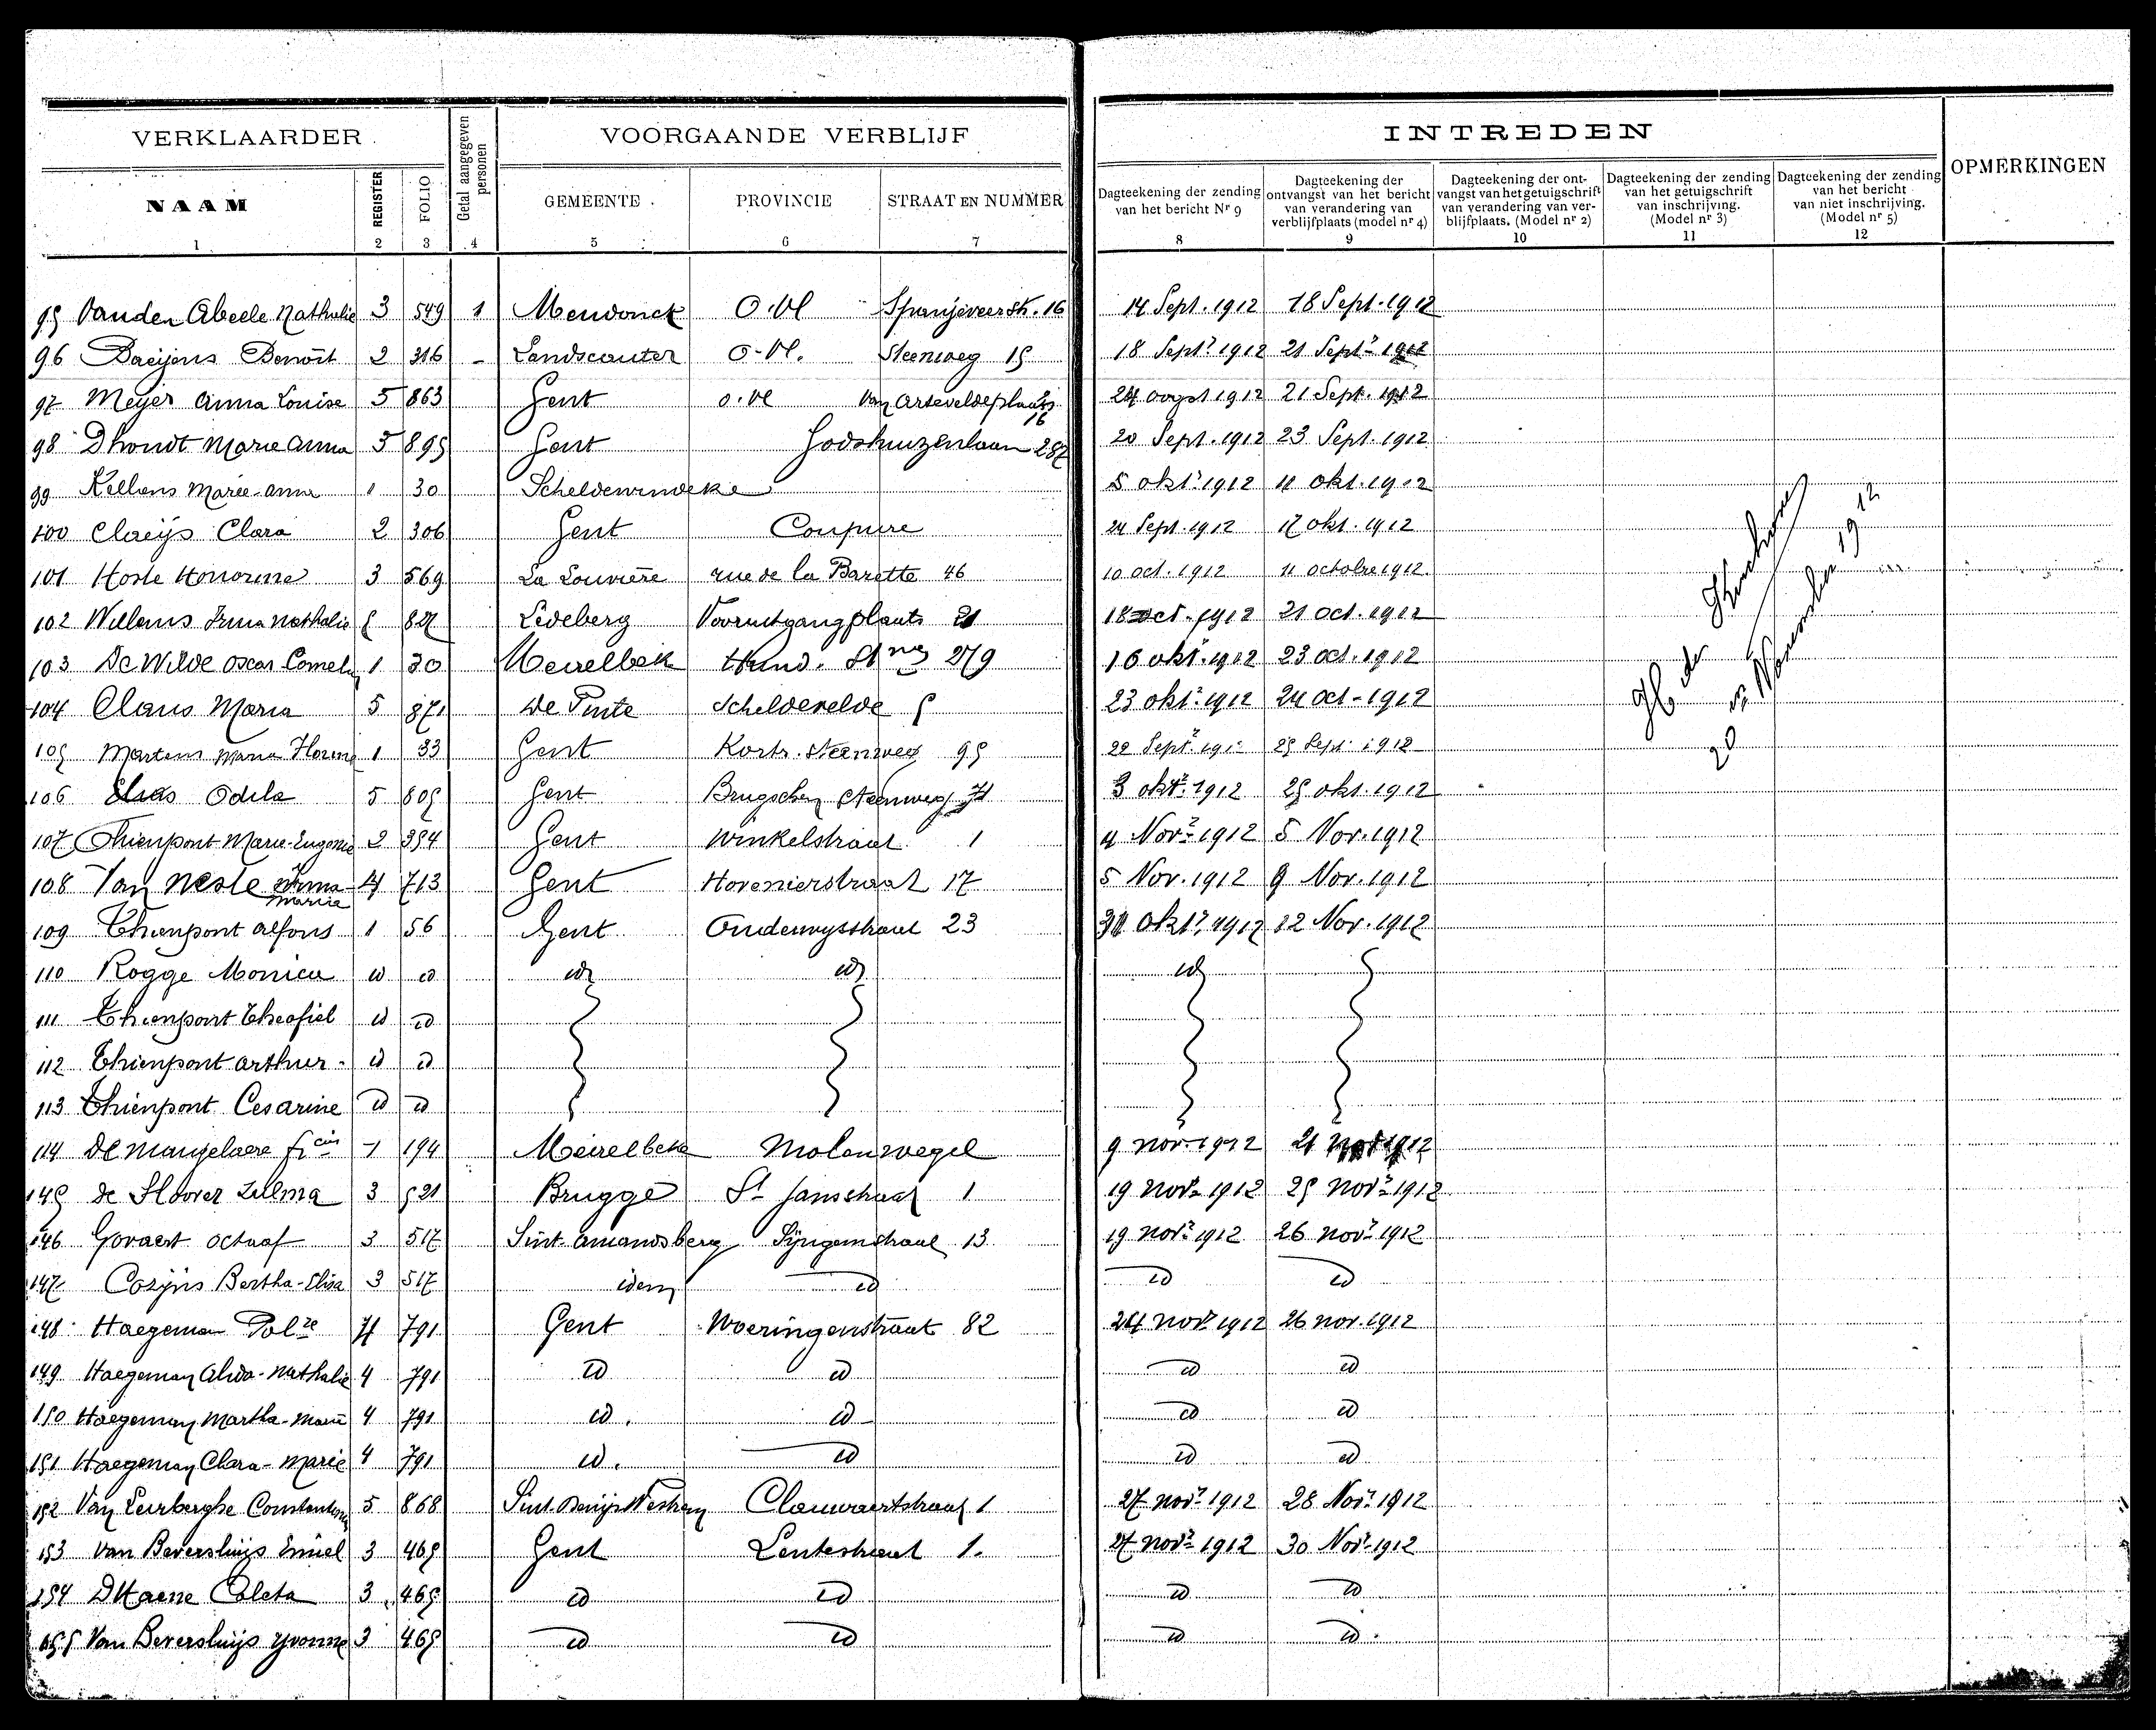 VERKLAARDER.
Getal aangegeven personen
VOORGAANDE VERBLIJF
INTREDEN
OPMERKINGEN
NAAM
REGISTER
FOLIO
GEMEENTE.
PROVINCIE
STRAAT EN NUMMER
Dagteekening der zending van het bericht Nr 9
Dagteekening der ontvangst van het bericht van verandering van verblijfplaats (model nr 4)
Dagteekening der ontvangst van het getuigschrift van verandering van verblijfplaats. (Model nr 2)
Dagteekening der zending van het getuigschrift van inschrijving. (Model nr 3)
Dagteekening der zending van het bericht van niet inschrijving. (Model nr 5)
1 2 3 4 5 6 7 8 9 10 11 12
95 Vanden Abeele Nathalie 3 549 1 Mendonck O.Vl Spanjeveerstr. 16 14 Sept. 1912 18 Sept. 1912
96 Daeijens Benoit 2 316 - Landscauter O-Vl. Steenweg 15 18 Sept. 1912 21 Sept. 1912
97 Meyer Anna Louise 5 863 Gent O.Vl Van Arteveldeplaats 16 24 oogst 1912 21 Sept. 1912
98 Dhondt Marie Anna 5 895 Gent Godshuizenlaan 287 20 Sept. 1912 23 Sept. 1912
99 Kellens Marie-Anna 1 30 Scheldewindeke 5 okt. 1912 11 okt. 1912
100 Claeijs Clara 2 306 Gent Coupure 24 Sept. 1912 17 okt. 1912
101 Hoste Honorine 3 569 La Louvière rue de la Barette 46 10 oct. 1912 11 octobre 1912
102 Willems Irma Nathalie 5 827 Ledeberg Vooruitgangplaats 21 18 oct. 1912 21 oct. 1912
103 De Wilde Oscar 1 30 Meirelbek Hund. Stng 279 16 okt. 1912 23 oct. 1912
104 Claus Maria 5 871 De Pinte Schelderelde 5 23 okt. 1912 24 oct-1912
105 Martens Maria 1 33 Gent Kortr. steenweg 95 22 Sept. 25 Sept. 1912
106 Elias Odila 5 805 Gent Brugschen Steenweg 3 okt. 1912 25 okt. 1912
107 Thienpont Marie-Eugenie 2 394 Gent Winkelstraat 1 4 Nov. 1912 5 Nov. 1912
108 Van Neste Irma Maria 4 713 Gent Hovenierstraat 17 5 Nov. 1912 9 Nov. 1912
109 Thienpont Alfons 1 56 Gent Onderwysstraat 23 31 okt. 1912 12 Nov. 1912
110 Rogge Monica id id id id id
111 Thienpont Theofiel id id
112 Thienpont Arthur. id id
113 Thienpont Cesarine id id
114 De Mangelaere 1 194 Meirelbeke Molenwegel 9 nov. 1912 21 nov. 1912
145 De Sloover Zulma 3 521 Brugge St Jansstraat 1 19 Nov. 1912 25 Nov. 1912
146 Govaert Octaaf 3 517 Sint Amandsberg Sijngemstraat 13 19 nov. 1912 26 nov. 1912
147 Cozijns Bertha-Elisa 3 517 idem id id id
148 Haegeman 4 791 Gent Woeringenstraat 82 24 nov. 1912 26 nov. 1912
149 Haegeman Alida-Nathalie 4 791 id id id id
150 Haegeman Martha-Marie 4 791 id. id id id
151 Haegeman Clara-Marie 4 791 id. id id id
152 Van Leirberghe 5 868 Sint Denijs Westrem Clauwaertstraat 1 27 nov. 1912 28 Nov. 1912
153 Van Beversluijs Emiel 3 465 Gent Lentestraat 1. 27 nov. 1912 30 Nov. 1912
154 DHaene Coleta 3 465 id id id id
155 Van Beversluijs Yvonne 3 465 id id id id